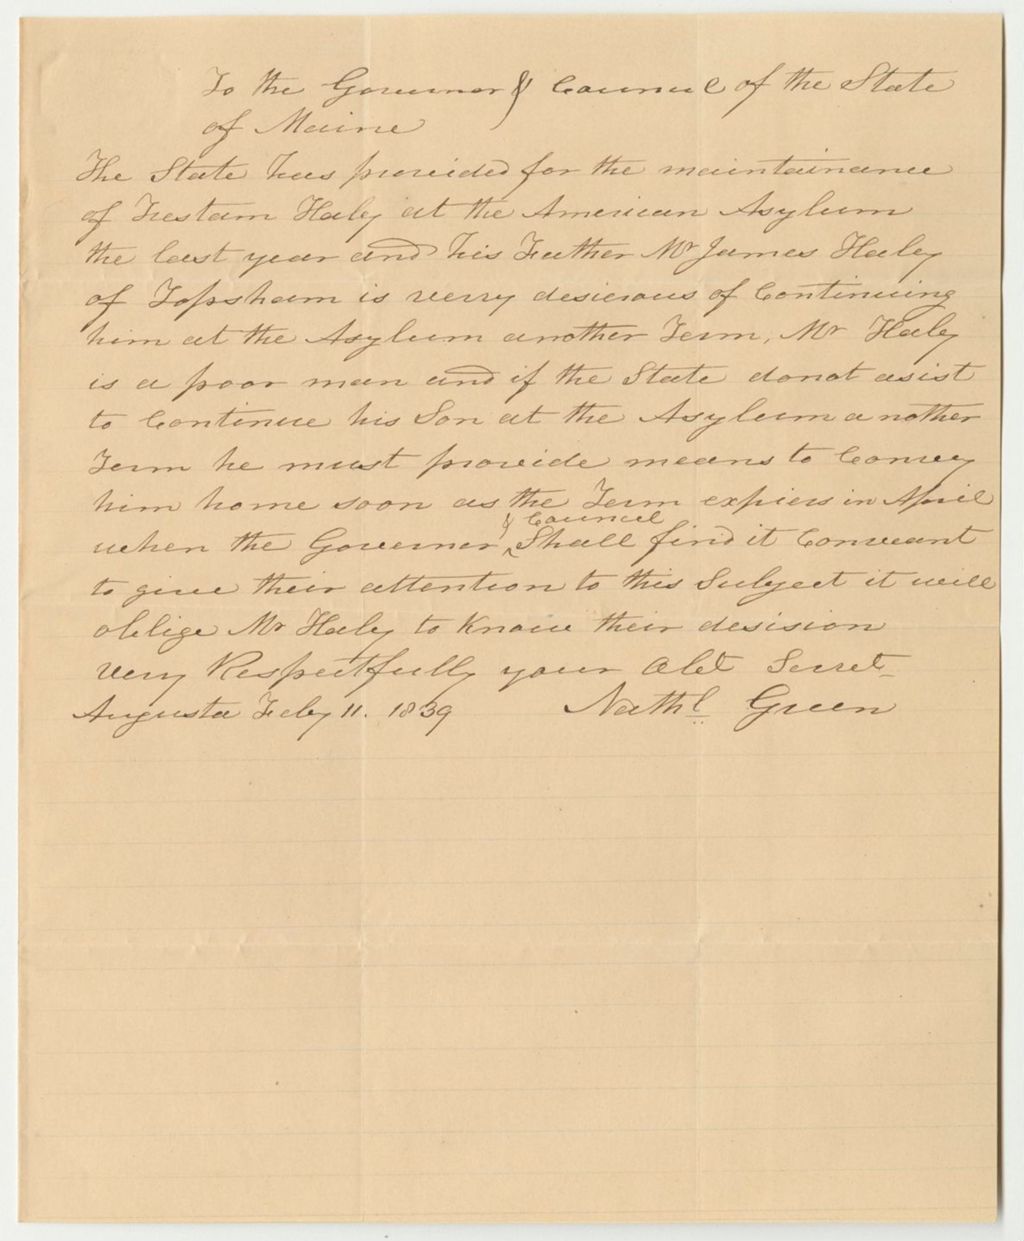 To the Governor & Council of the State
of Maine
The State has provided for the maintainance
of Trestam Haley at the American Asylum
the last year and his Father Mr James Haley
of Topsham is verry desierous of Continuing
him at the Asylum another Term, Mr Haley
is a poor man and if the State donot asist
to Continue his Son at the Asylum another
Term he must provide means to Convey
him home soon as the Term expiers in April
& Council
when the Governor ^ Shall find it Conveant
to give their attention to this Subject it will
oblige Mr Haley to Know their desision
very Respectfully your Obt Servt
Augusta Feby 11. 1839 Nathl Green